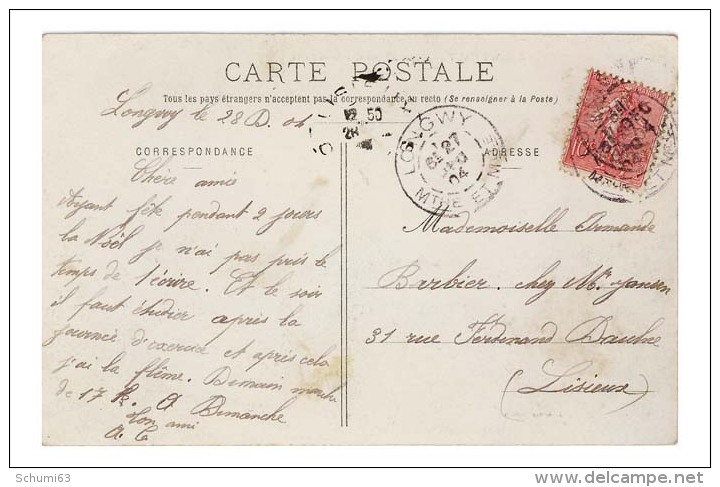 CARTE POSTALE
Tous les pays étrangers n'acceptent pas la correspondance au recto (Se renseigner à la Poste)
Longwy le 28 D. 04
CORRESPONDANCE
ADRESSE
LONGWY
27
04
MTHE ET MLLE
12 50
28
Chère amie
Ayant fêté pendant 2 jours
la Noël je n'ai pas pris le
temps de t'écrire. Et le soir
il faut étudier après la
journée d'exercice et après cela
j'ai la flême. Demain marche
de 17 K. A Dimanche
ton ami
A. C
Mademoiselle Armande
Barbier. chez Mr Jansen
31 rue Ferdinand Daulne
(Lisieux)
Schumi63
www.delcampe.net